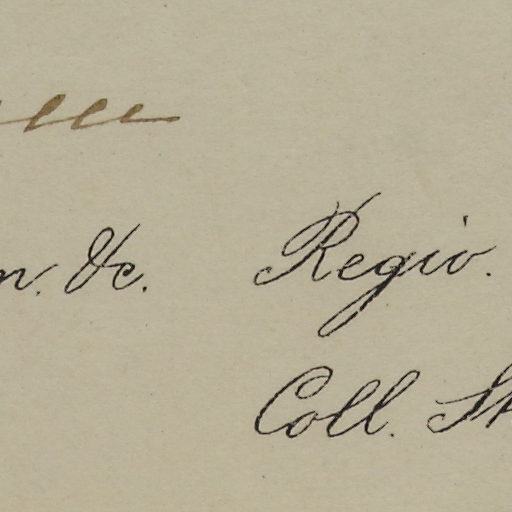 n. &c. Regio.
Coll. St